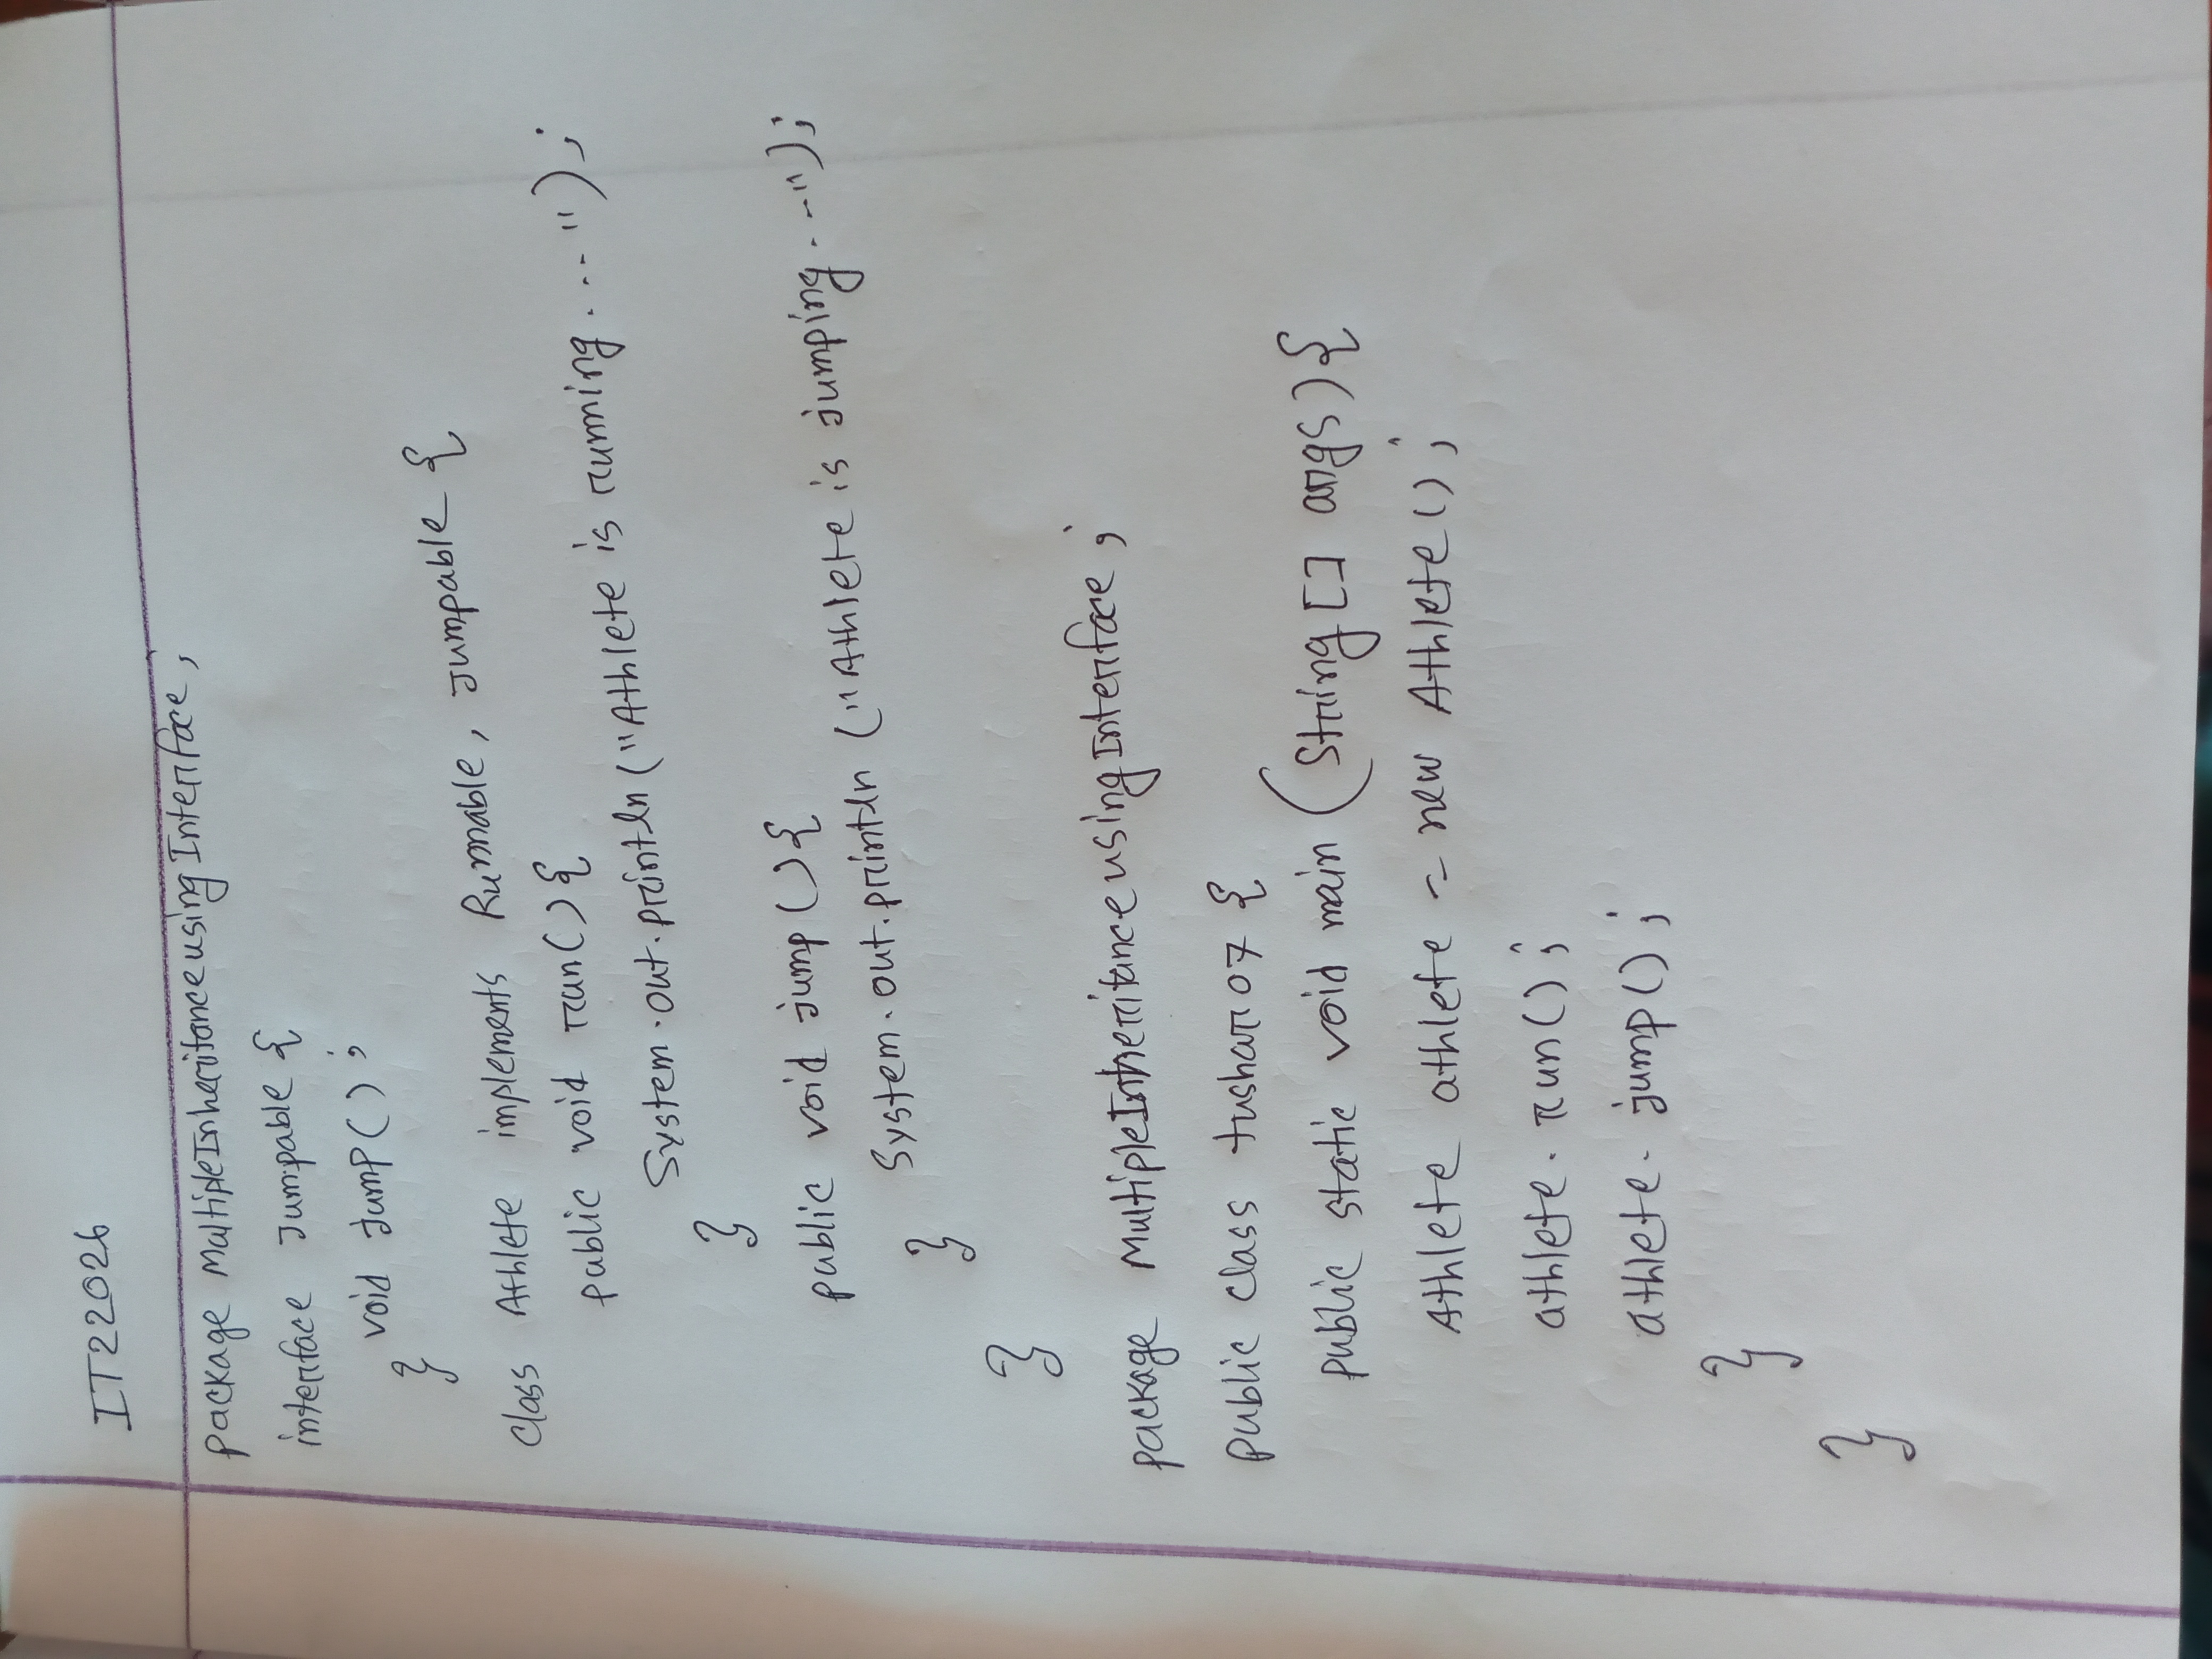 IT22026
package MultipleInheritanceusingInterface;
interface Jumpable {
void Jump();
}
class Athlete implements Runnable, Jumpable {
public void run(){
System.out.println("Athlete is running....");
}
public void jump(){
System.out.println("Athlete is jumping...");
}
}
package MultipleInheritanceusingInterface;
public class tushar07 {
public static void main (String[] args){
Athlete athlete = new Athlete();
athlete.run();
athlete.jump();
}
}